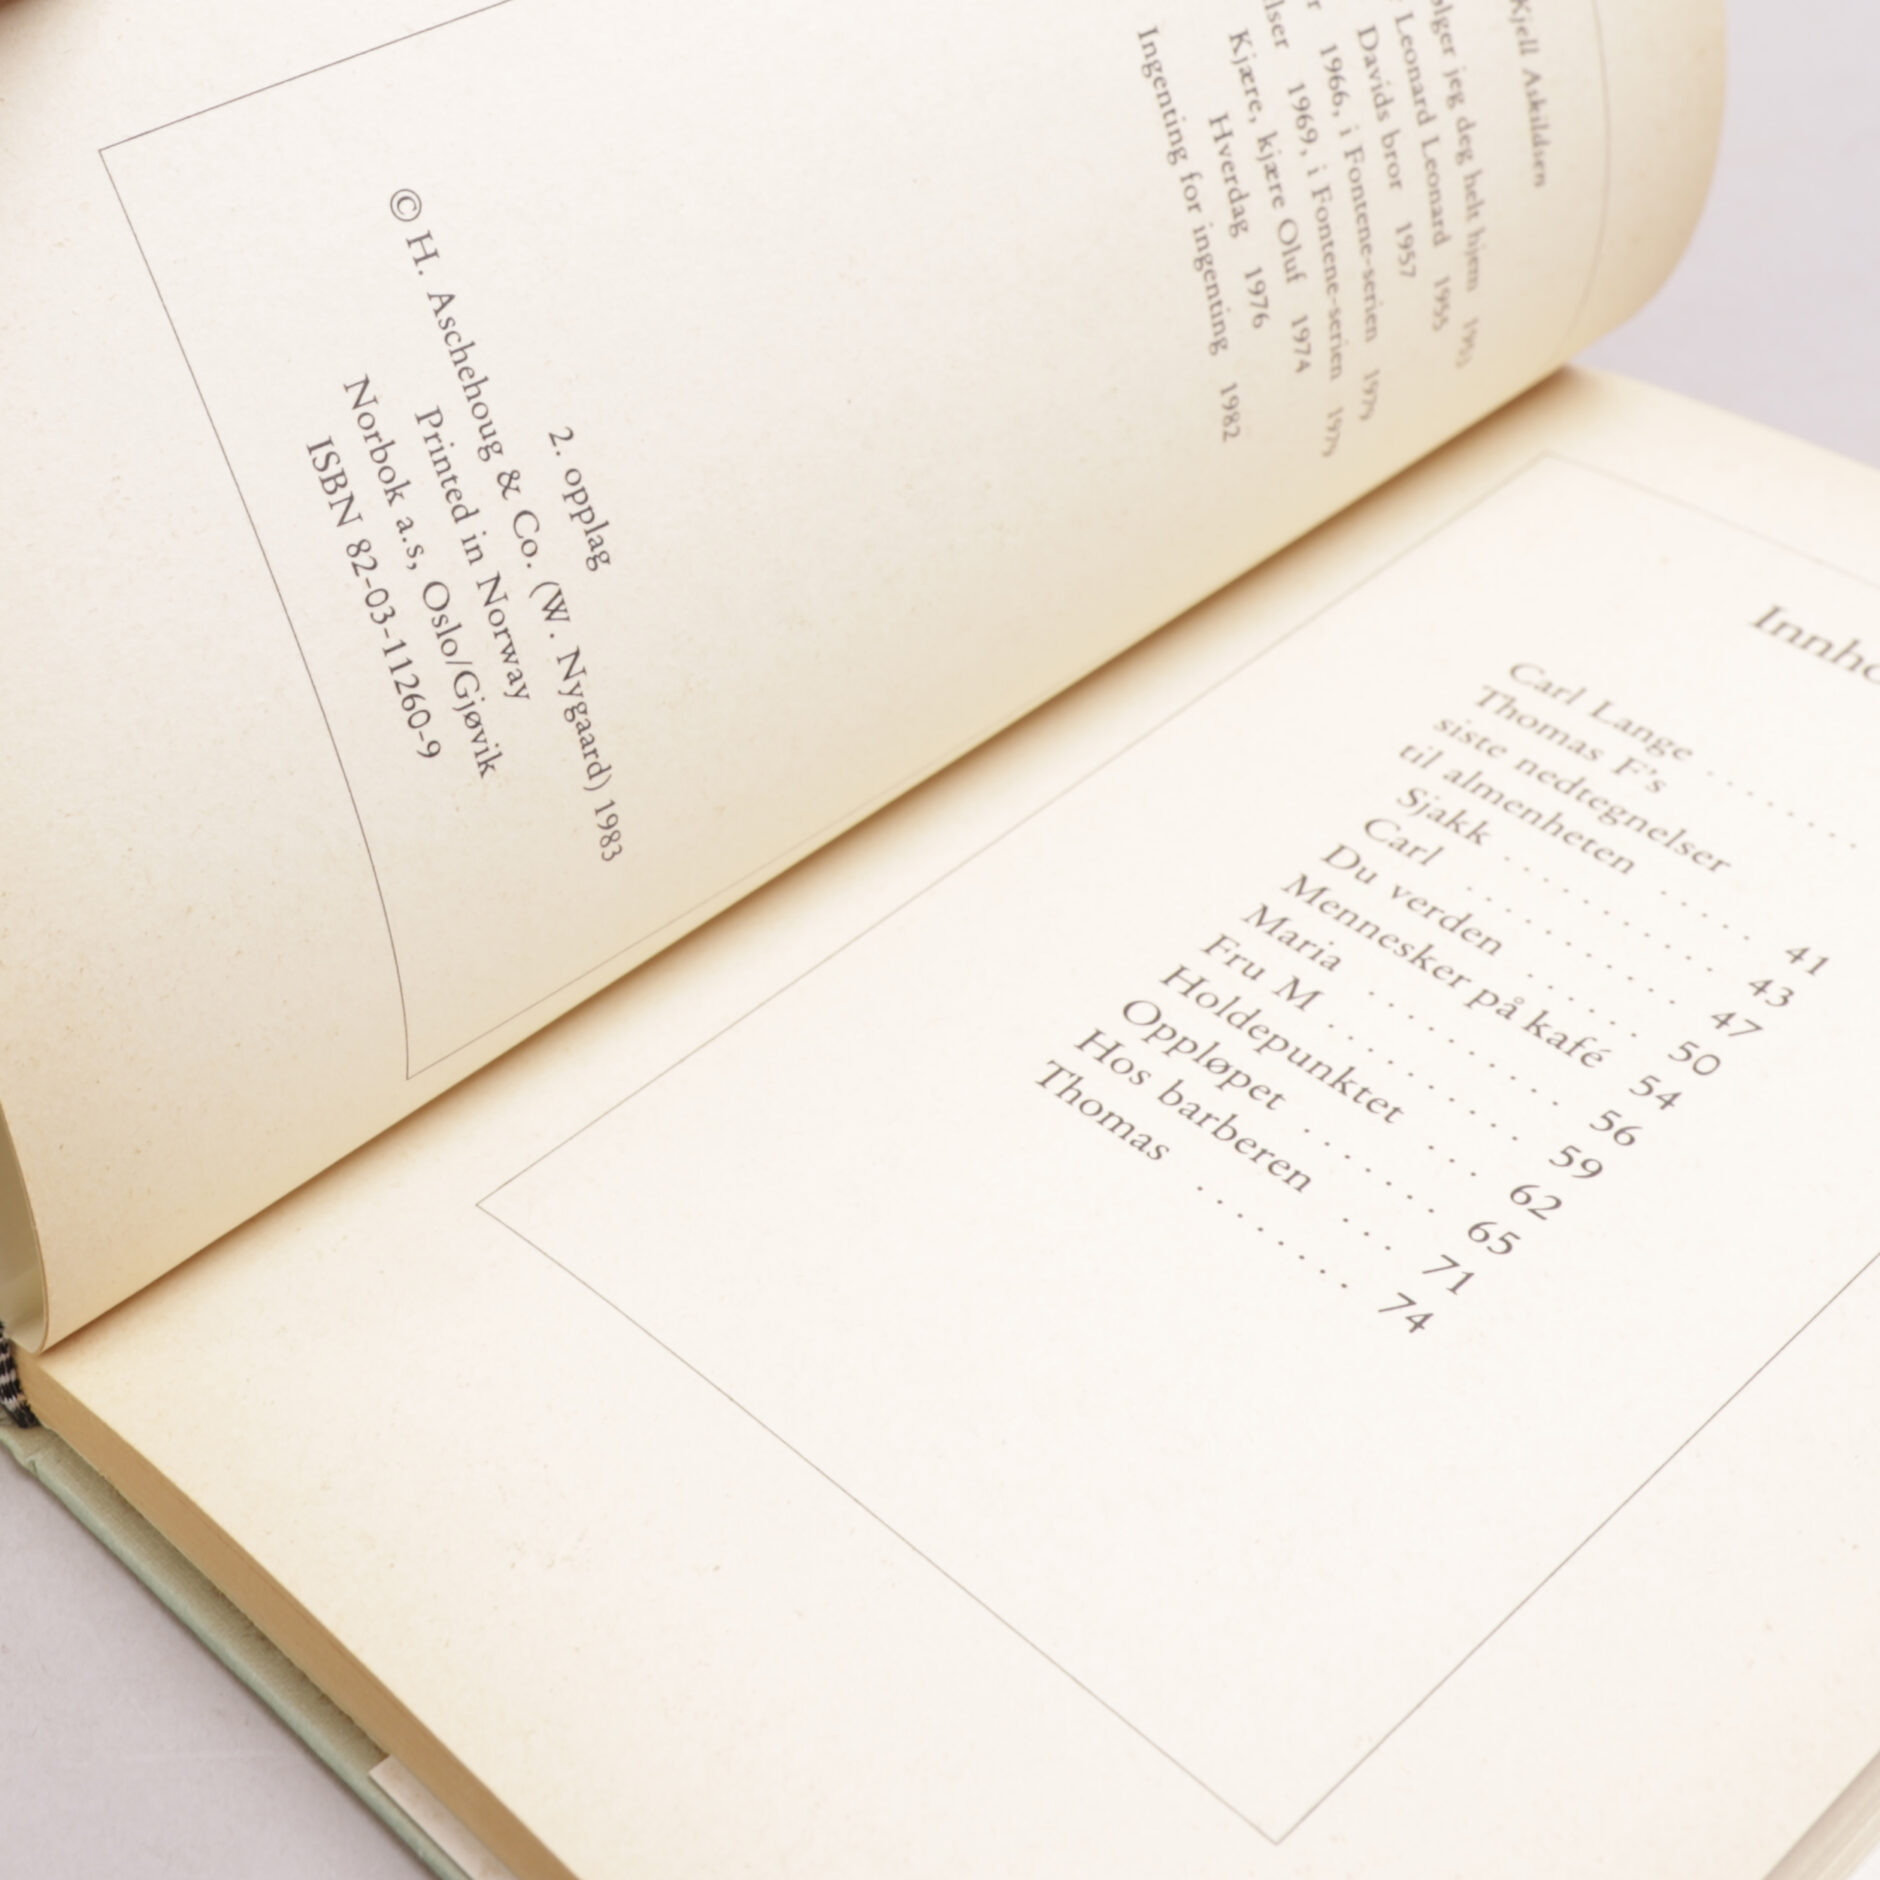 Kjell Askildsen
jeg deg helt hjem 1953
Leonard Leonard 1955
Davids bror 1957
1966, i Fontene-serien
1969, i Fontene-serien
Kjære, kjære Oluf 1974
Hverdag 1976
Ingenting for ingenting 1982
2. opplag
© H. Aschehoug & Co. (W. Nygaard) 1983
Printed in Norway
Norbok a.s, Oslo/Gjøvik
ISBN 82-03-11260-9
Carl Lange . . . . . . . .
Thomas F's
siste nedtegnelser
til almenheten . . . . . 41
Sjakk . . . . . . . . . . . 43
Carl . . . . . . . . . . . 47
Du verden . . . . . . 50
Mennesker på kafé 54
Maria . . . . . . . . . . 56
Fru M . . . . . . . . . . 59
Holdepunktet . . . 62
Oppløpet . . . . . . . 65
Hos barberen . . . 71
Thomas . . . . . . . . 74